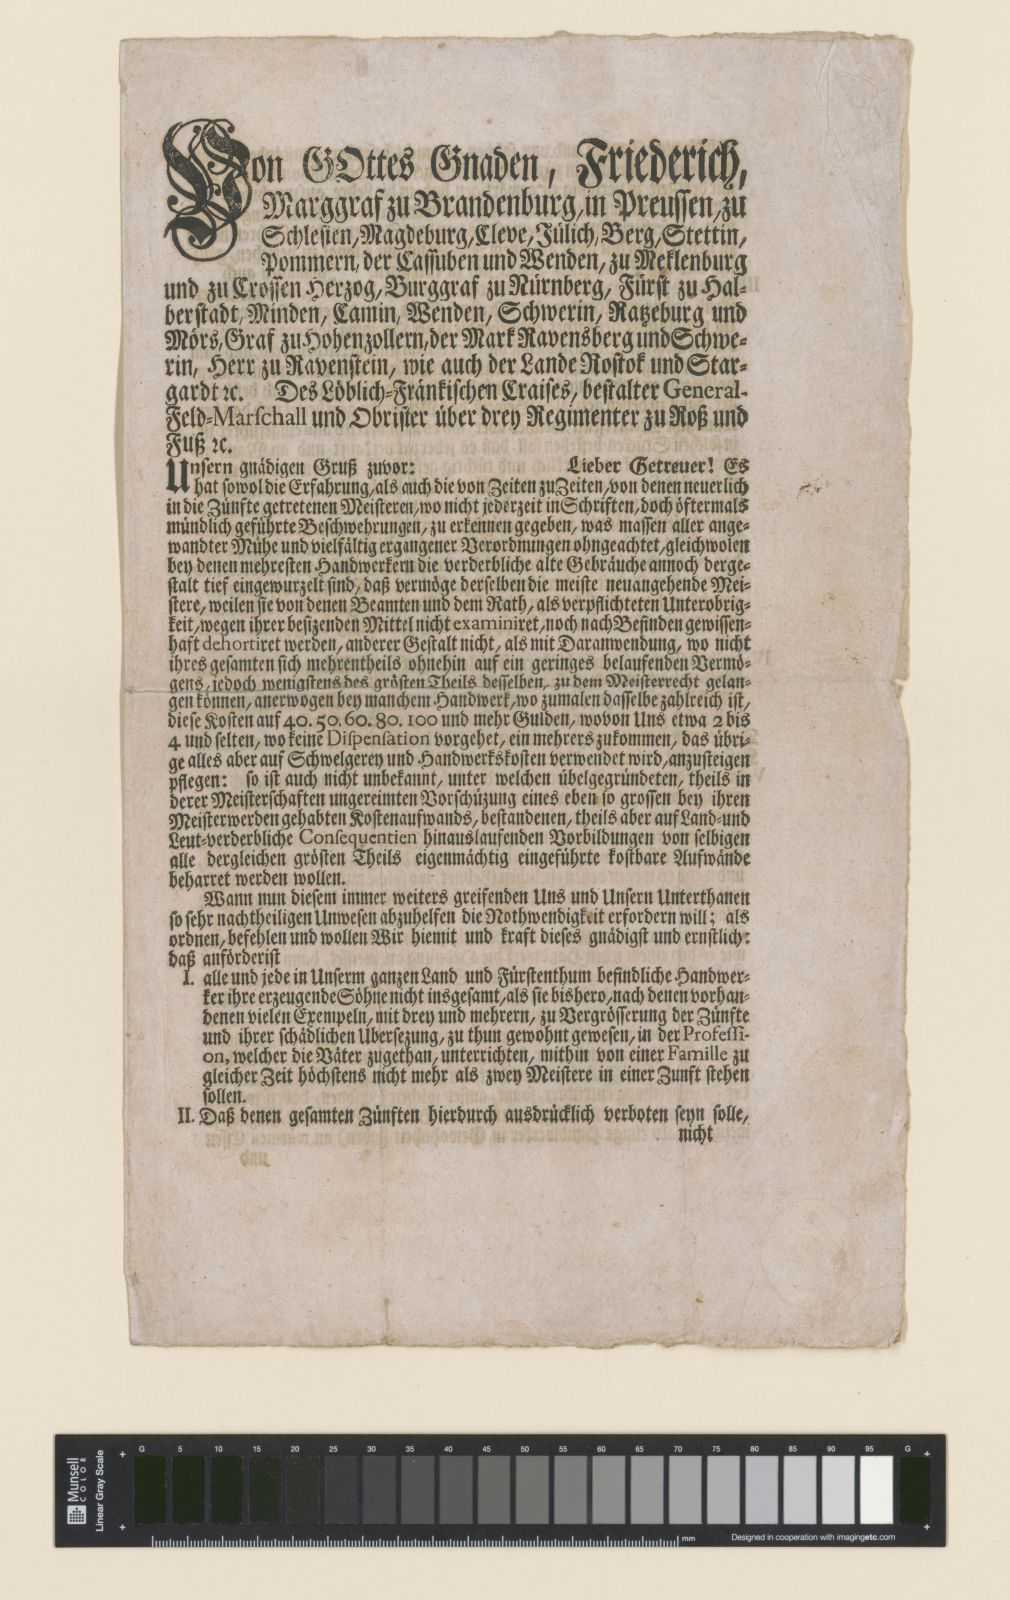 Von GOttes Gnaden, Friederich,
Marggraf zu Brandenburg, in Preussen, zu
Schlesien, Magdeburg, Cleve, Jülich, Berg, Stettin,
Pommern, der Cassuben und Wenden, zu Meklenburg
und zu Crossen Herzog, Burggraf zu Nürnberg, Fürst zu Hal-
berstadt, Minden, Camin, Wenden, Schwerin, Ratzeburg und
Mörs, Graf zu Hohenzollern, der Mark Ravensberg und Schwe-
rin, Herr zu Ravenstein, wie auch der Lande Rostok und Star-
gardt ꝛc. Des Löblich-Fränkischen Craises, bestalter General-
Feld-Marschall und Obrister über drey Regimenter zu Roß und
Fuß ꝛc.
Unsern gnädigen Gruß zuvor: Lieber Getreuer! Es
hat sowol die Erfahrung, als auch die von Zeiten zu Zeiten, von denen neuerlich
in die Zünfte getretenen Meisteren, wo nicht jederzeit in Schriften, doch öftermals
mündlich geführte Beschwehrungen, zu erkennen gegeben, was massen aller ange-
wandter Mühe und vielfältig ergangener Verordnungen ohngeachtet, gleichwolen
bey denen mehresten Handwerkern die verderbliche alte Gebräuche annoch derge-
stalt tief eingewurzelt sind, daß vermöge derselben die meiste neuangehende Mei-
stere, weilen sie von denen Beamten und dem Rath, als verpflichteten Unterobrig-
keit, wegen ihrer besizenden Mittel nicht examiniret, noch nach Befinden gewissen-
haft dehortiret werden, anderer Gestalt nicht, als mit Daranwendung, wo nicht
ihres gesamten sich mehrentheils ohnehin auf ein geringes belaufenden Vermö-
gens, jedoch wenigstens des grösten Theils desselben, zu dem Meisterrecht gelan-
gen können, anerwogen bey manchem Handwerk, wo zumalen dasselbe zahlreich ist,
diese Kosten auf 40. 50. 60. 80. 100 und mehr Gulden, wovon Uns etwa 2 bis
4 und selten, wo keine Dispensation vorgehet, ein mehrers zukommen, das übri-
ge alles aber auf Schwelgerey und Handwerkskosten verwendet wird, anzusteigen
pflegen: so ist auch nicht unbekannt, unter welchen übelgegründeten, theils in
derer Meisterschaften ungereimten Vorschüzung eines eben so grossen bey ihren
Meisterwerden gehabten Kostenaufwands, bestandenen, theils aber auf Land- und
Leut-verderbliche Consequentien hinauslaufenden Vorbildungen von selbigen
alle dergleichen grösten Theils eigenmächtig eingeführte kostbare Aufwände
beharret werden wollen.
Wann nun diesem immer weiters greifenden Uns und Unsern Unterthanen
so sehr nachtheiligen Unwesen abzuhelfen die Nothwendigkeit erfordern will; als
ordnen, befehlen und wollen Wir hiemit und kraft dieses gnädigst und ernstlich:
daß anförderist
I. alle und jede in Unserm ganzen Land und Fürstenthum befindliche Handwer-
ker ihre erzeugende Söhne nicht insgesamt, als sie bishero, nach denen vorhan-
denen vielen Exempeln, mit drey und mehrern, zu Vergrösserung der Zünfte
und ihrer schädlichen Ubersezung, zu thun gewohnt gewesen, in der Professi-
on, welcher die Väter zugethan, unterrichten, mithin von einer Famille zu
gleicher Zeit höchstens nicht mehr als zwey Meistere in einer Zunft stehen
sollen.
II. Daß denen gesamten Zünften hierdurch ausdrücklich verboten seyn solle,
nicht
Munsell
COLOR
Linear Gray Scale
G 5 10 15 20 25 30 35 40 45 50 55 60 65 70 75 80 85 90 95 G
mm
Designed in cooperation with imagingetc.com